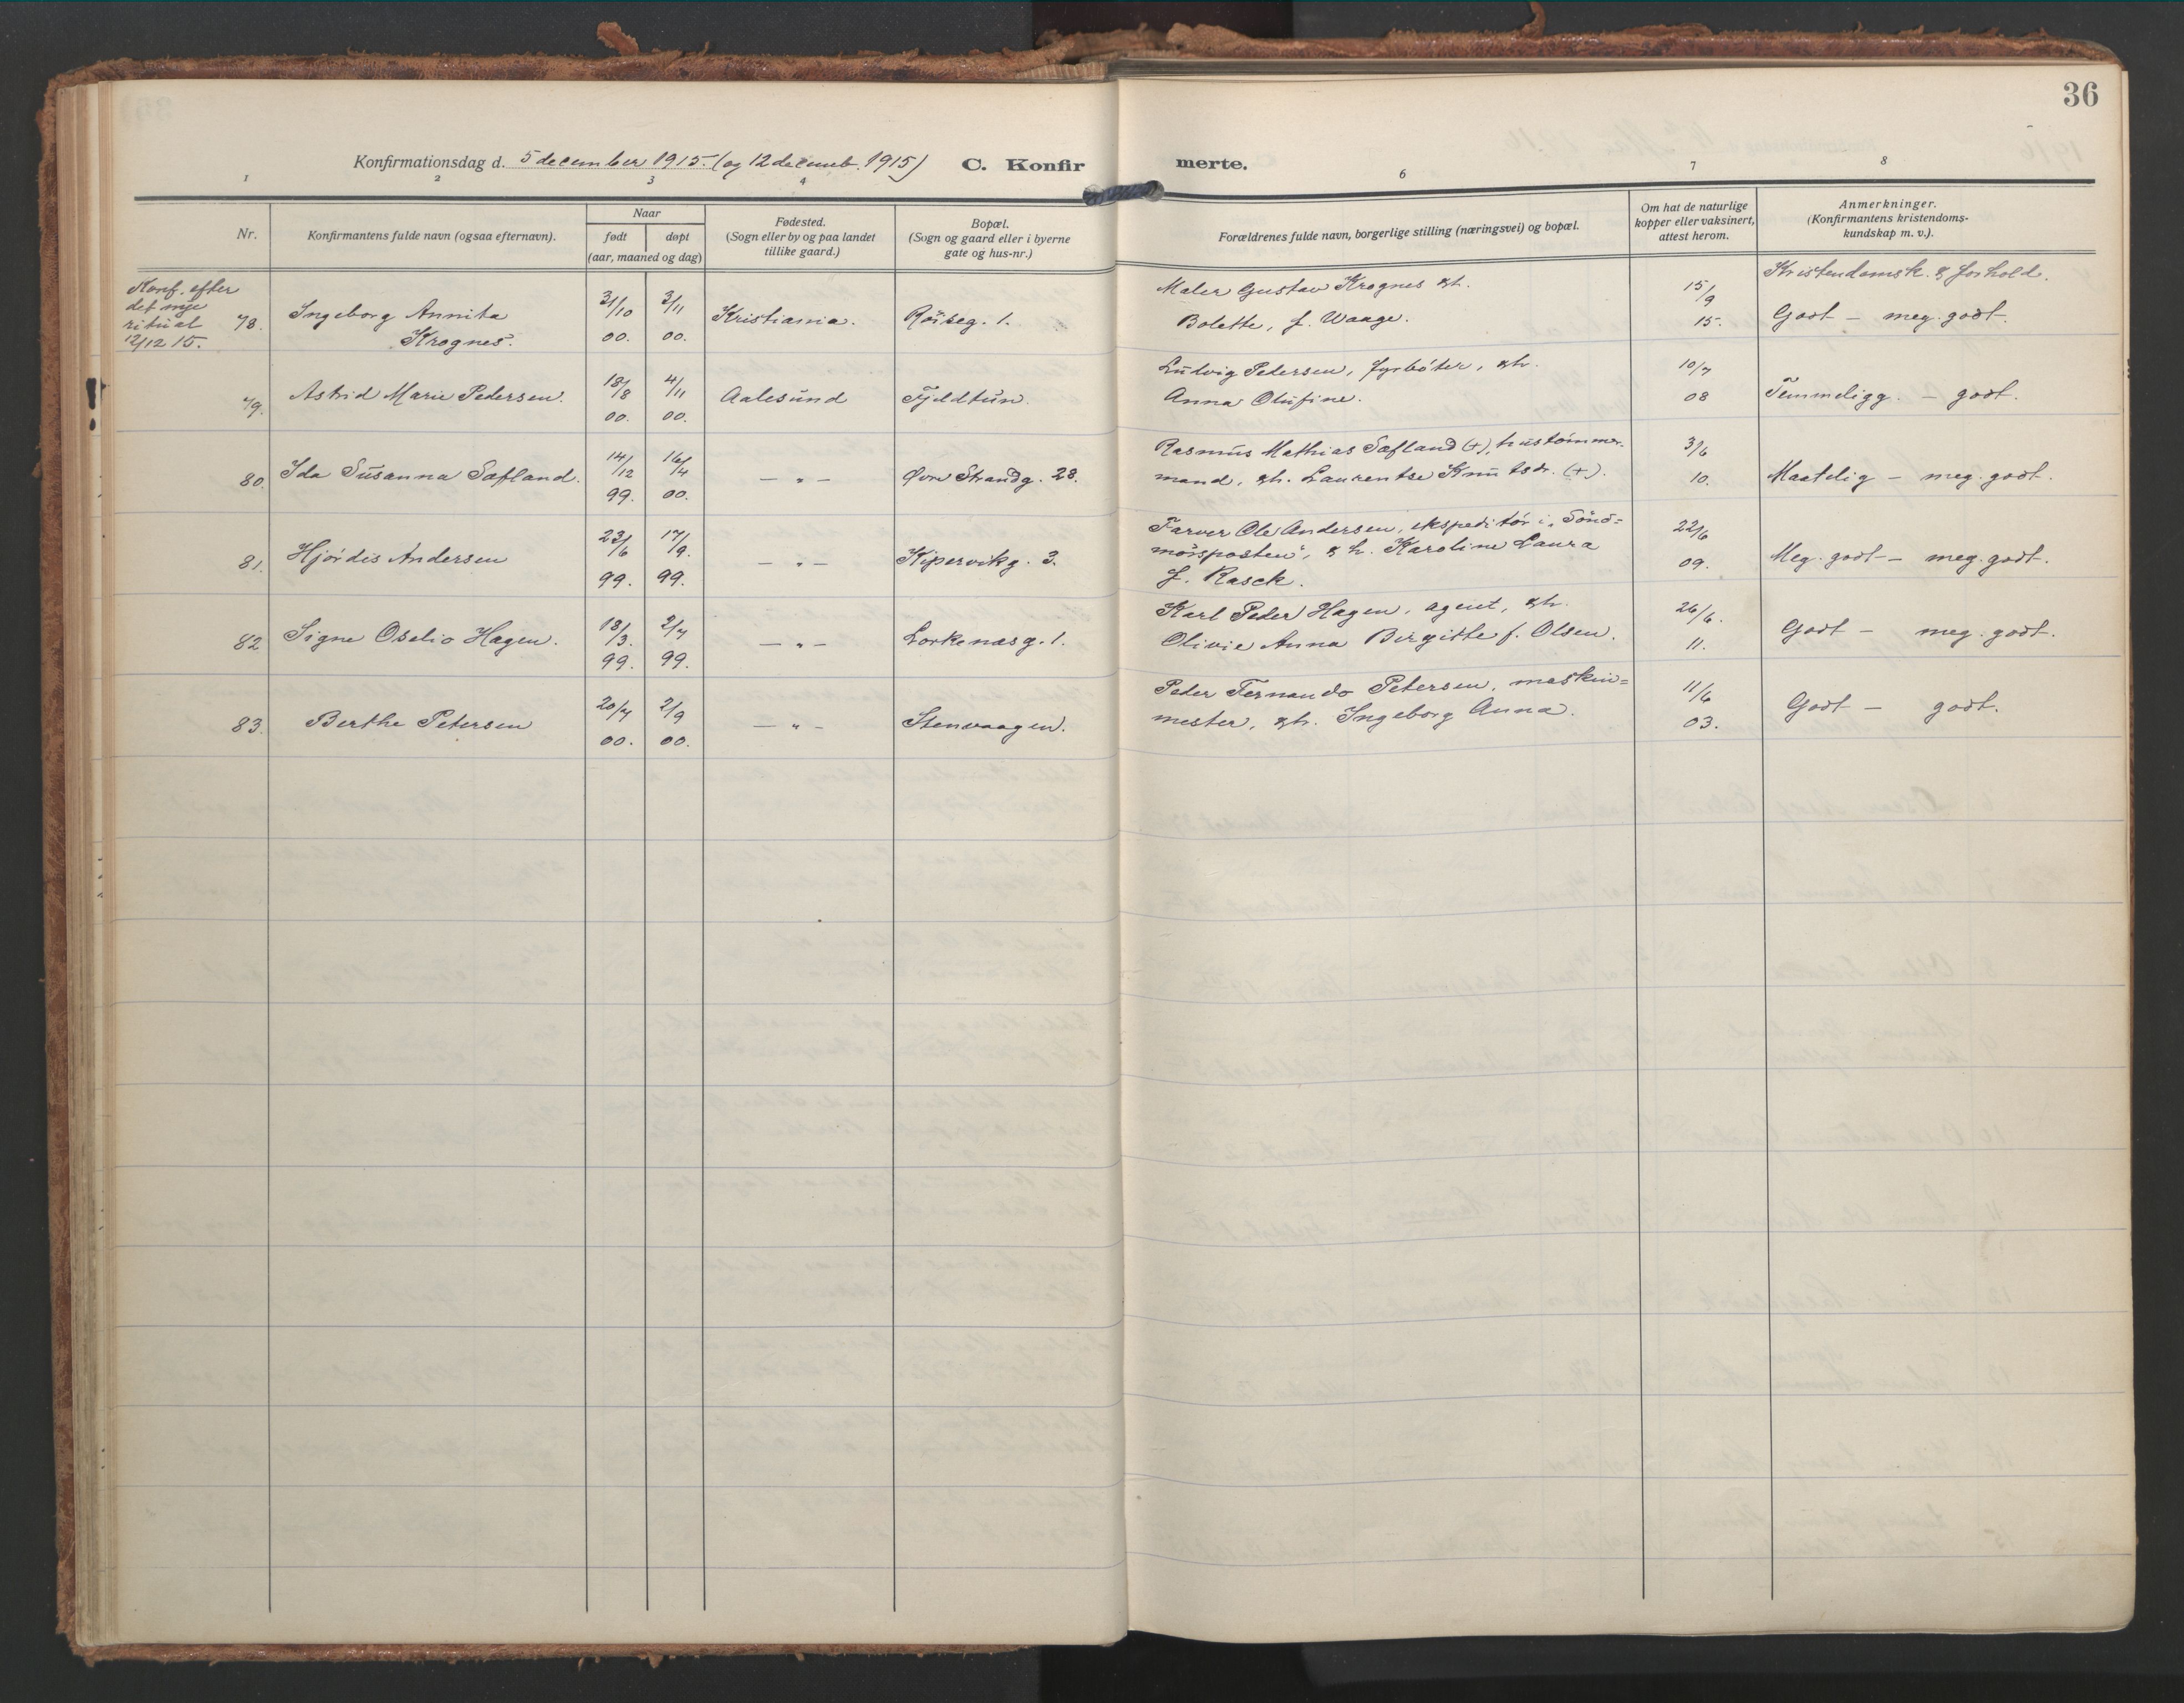 36
Konfirmationsdag d. 5 december 1915. (og 12 decemb. 1915) C. Konfirmerte.
1 2 3 4 6 7 8
Nr.
Konfirmantens fulde navn (ogsaa efternavn).
Naar
født døpt
(aar, maaned og dag)
Fødested.
(Sogn eller by og paa landet
tillike gaard.)
Bopæl.
(Sogn og gaard eller i byerne
gate og hus-nr.)
Forældrenes fulde navn, borgerlige stilling (næringsvei) og bopæl.
Om hat de naturlige
kopper eller vaksinert,
attest herom.
Anmerkninger.
(Konfirmantens kristendoms-
kundskap m. v.).
Kristendomsk. & forhold.
Konf. efter
det nye
ritual
12/12 15.
78. Ingeborg Annita
Krognes.
31/10 00. 3/11 00. Kristiania. Röiseg. 1.
Maler Gustav Krognes & h.
Bolette, f. Waage.
15/9 15. Godt – meg. godt.
79. Astrid Marie Pedersen. 18/8 00. 4/11 00. Aalesund Fjeldtun.
Ludvig Petersen, fyrböter, & h.
Anna Olufine.
10/7 08 Temmeligg. – godt.
80. Ida Susanna Sæfland. 14/12 99. 16/4 00. – " – Øvre Strandg. 28.
Rasmus Mathias Sæfland (+), hustömmer-
mand, & h. Laurentse Knutsdr. (+).
3/6 10. Maatelig – meg. godt.
81. Hjördis Andersen 23/6 99. 17/9. 99. – " – Kipervikg. 3.
Farver Ole Andersen, ekspeditör i „Sönd=
mörsposten", & h. Karoline Laura
f. Rasck.
22/6 09. Meg. godt – meg. godt.
82 Signe Oselio Hagen. 18/3. 99. 2/7 99. – " – Lorkenæsg. 1.
Karl Peder Hagen, agent, & h.
Olivie Anna Birgitte f. Olsen.
26/6. 11. Godt – meg. godt.
83. Berthe Petersen 20/7 00. 2/9 00. – " – Stenvaagen.
Peder Fernando Petersen, maskin=
mester, & h. Ingeborg Anna.
11/6 03. Godt – godt.